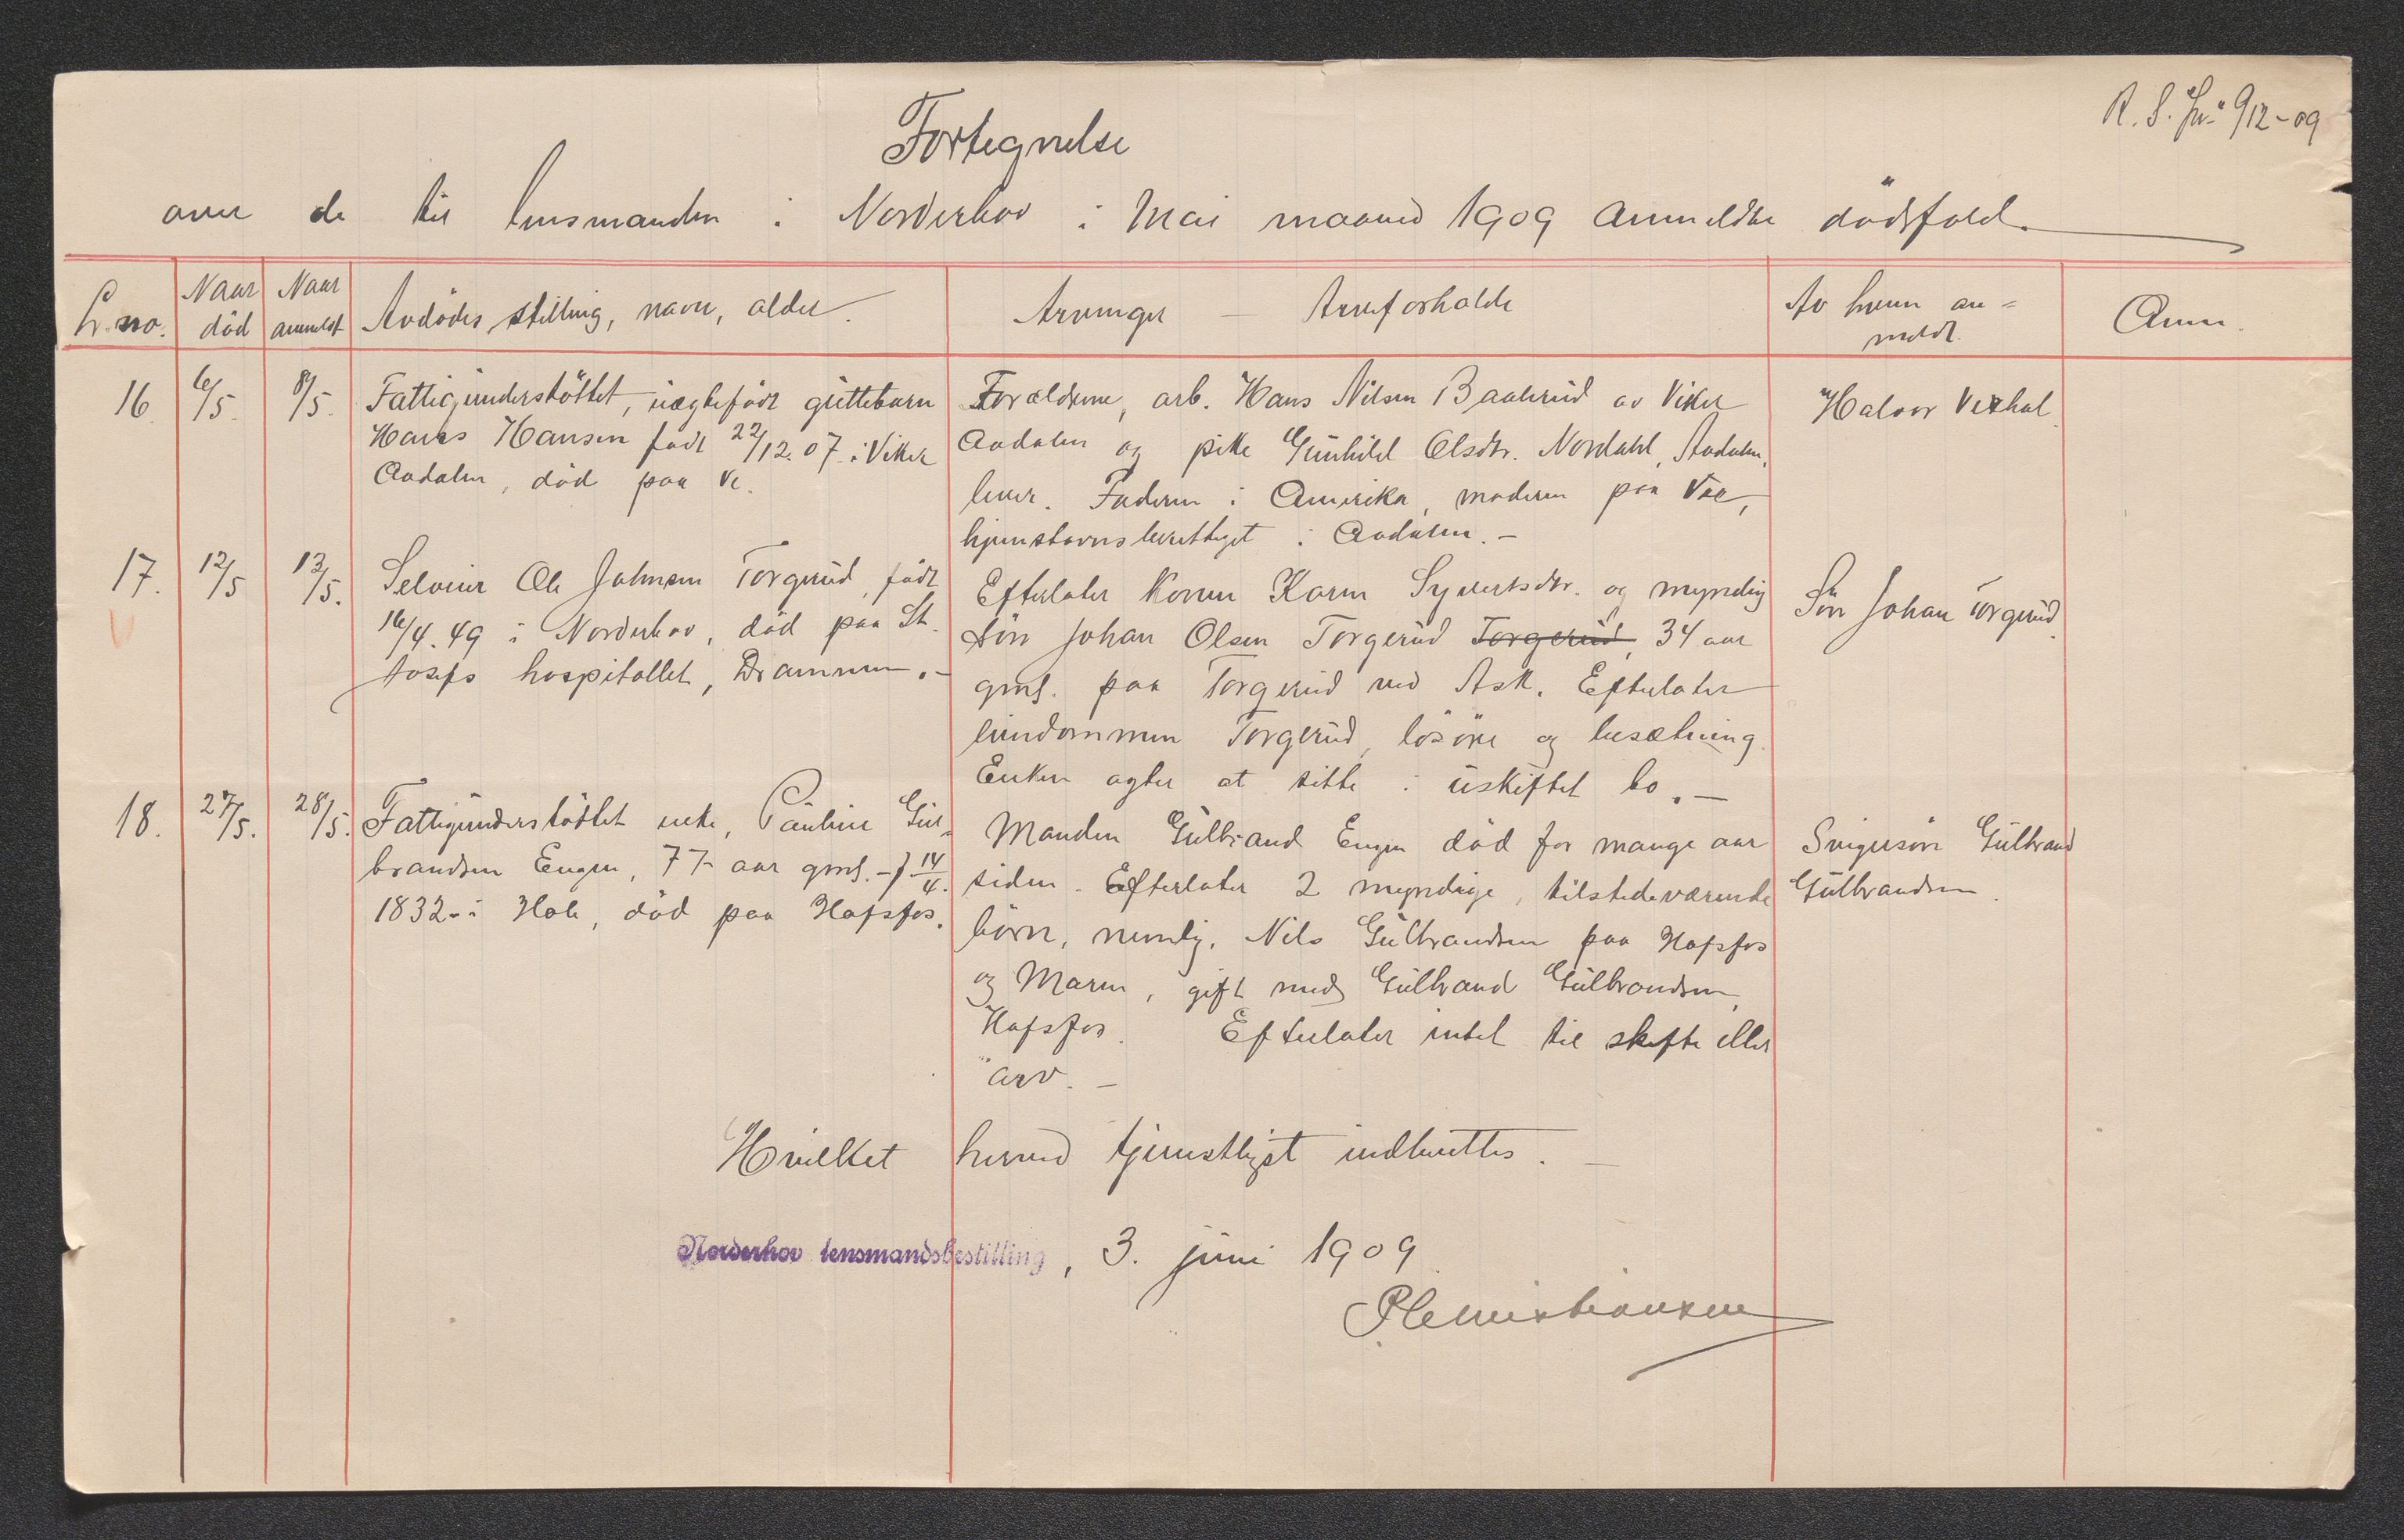 R. S. Jr. 912-09
Fortegnelse
over de til lensmanden i Norderhov i Mai maaned 1909 anmeldte dödsfald.
L.no.
Naar död
Naar anmeldt
Avdödes stilling, navn, alder.
Arvinger – Arveforholde
Av hvem an=
meldt.
Anm.
16
6/5.
8/5.
Fattigunderstöttet, uegtefödt guttebarn
Hans Hansen födt 22/12.07. i Viker
Aadalen, död paa Ve.
Forældrene, arb. Hans Nilsen Baaherud av Viker
Aadalen og pike Gunhild Olsdtr. Nordahl, Aadalen,
lever. Faderen i Amerika, moderen paa Ve,
hjemstavnsberettiget i Aadalen. –
Halvor Ve
17.
12/5
13/5.
Selveier Ole Johnsen Torgerud, födt
16/4.49 i Norderhov, död paa St.
Josefs hospitallet, Drammen. –
Efterlater konen Karen Syvertsdtr. og myndig
sön Johan Olsen Torgerud Torgerud, 34 aar
gml. paa Torgerud ved Ask. Efterlater
eiendommen Torgerud, lösöre og besætning.
Enken agter at sitte i uskiftet bo. –
Sön Johan Torgerud.
18.
27/5.
28/5.
Fattigunderstöttet enke, Pauline Gul-
brandsen Engen, 77 aar gml. – f. 14/4.
1832 – i Hole, död paa Hofsfos.
Manden Gulbrand Engen död for mange aar
siden. Efterlater 2 myndige, tilstedeværende
börn, nemlig, Nils Gulbrandsen paa Hofsfos
og Maren, gift med Gulbrand Gulbrandsen,
Hofsfos. Efterlater intet til skifte eller
arv. –
Svigersön Gulbrand
Gulbrandsen.
Hvilket herved tjenstligst indberettes. –
Norderhov lensmandsbestilling, 3. juni 1909